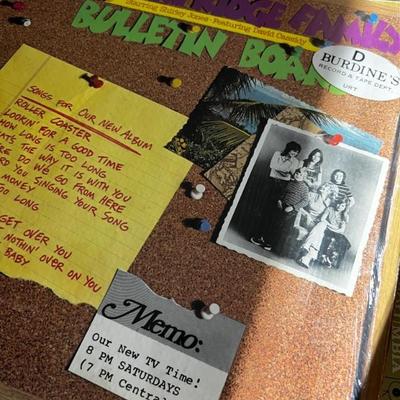 FAMILY
Starring Shirley Jones · Featuring David Cassidy
BULLETIN BOARD
D
BURDINE'S
RECORD & TAPE DEPT.
URT
SONGS FOR OUR NEW ALBUM
ROLLER COASTER
LOOKIN' FOR A GOOD TIME
HOW LONG IS TOO LONG
THE WAY IT IS WITH YOU
DO WE GO FROM HERE
YOU SINGING YOUR SONG
MONEY
LONG
GET OVER YOU
NOTHIN' OVER ON YOU
BABY
Memo:
Our New TV Time!
8 PM SATURDAYS
(7 PM Central